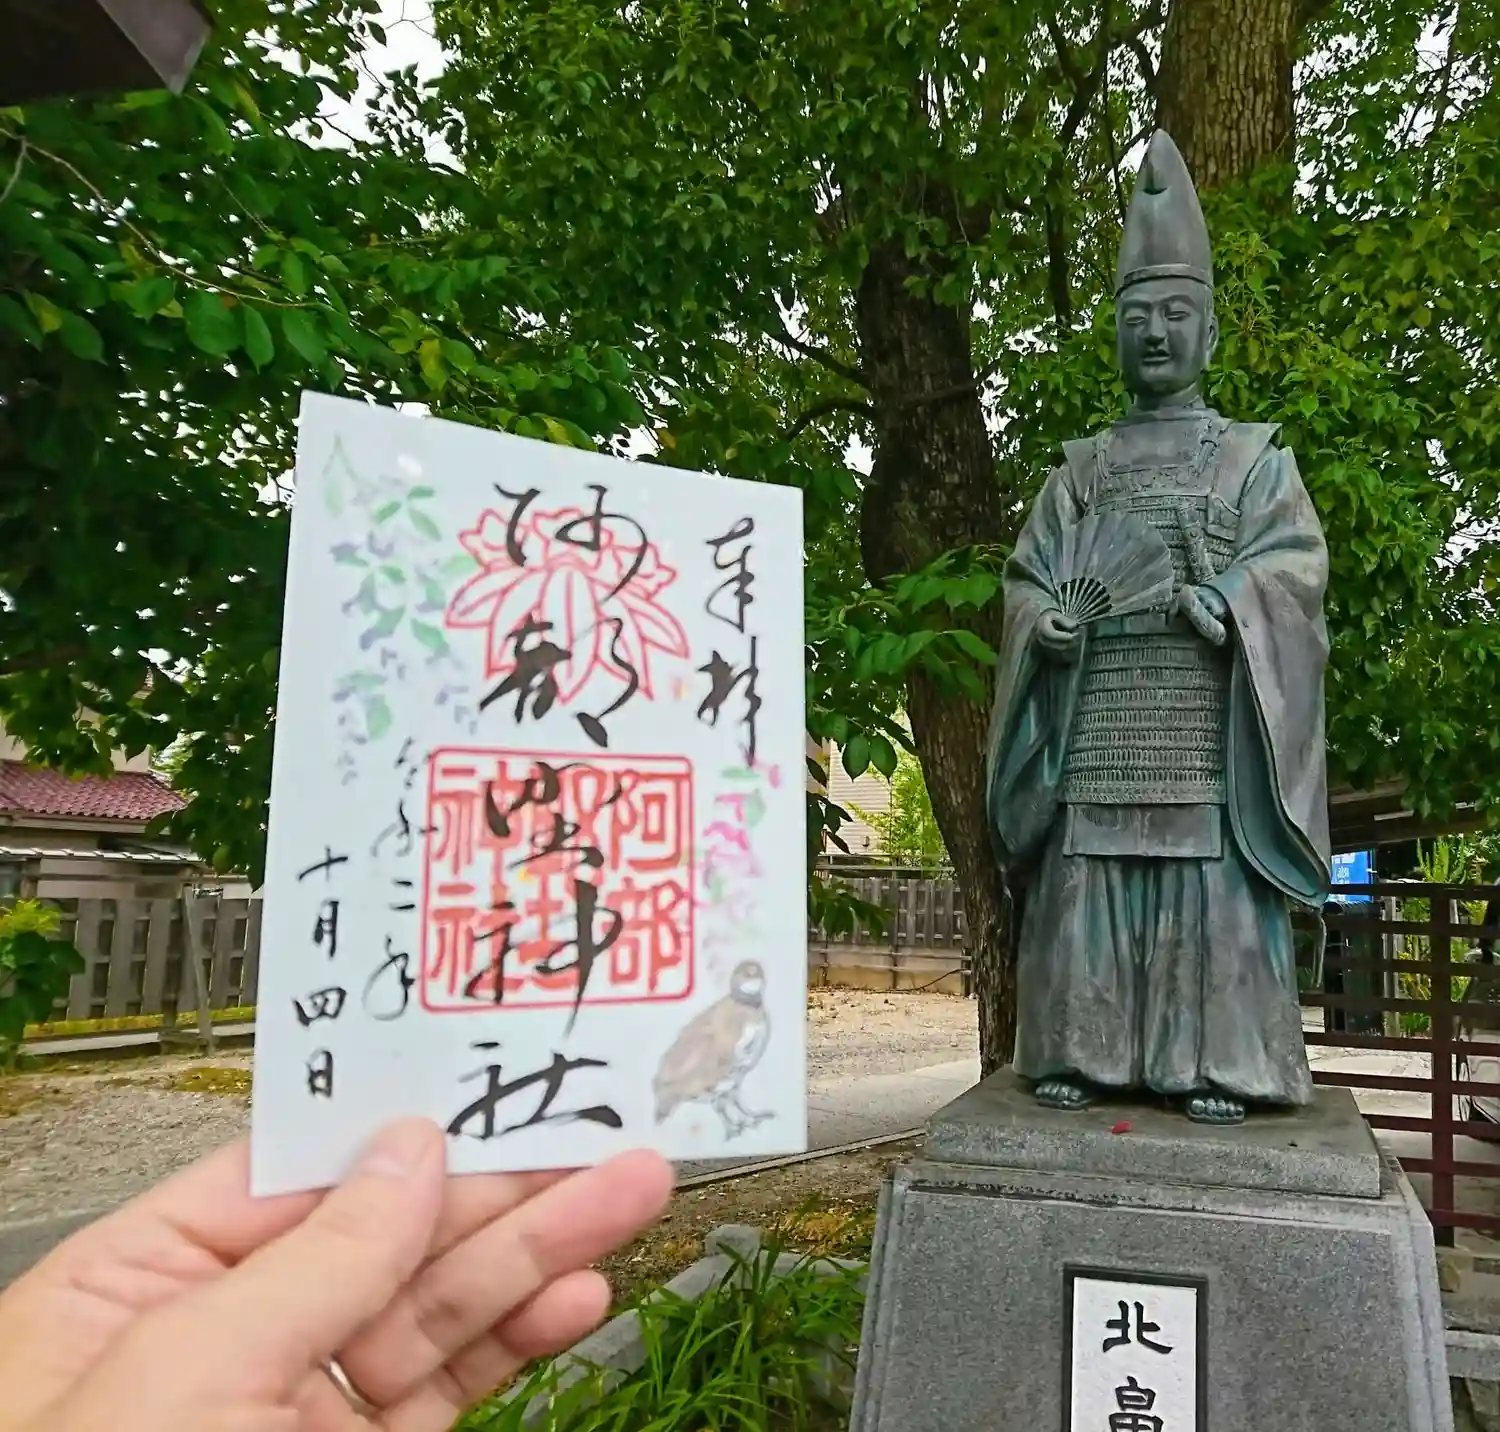 奉拝
阿部野神社
阿部
野
神社
令和二年
十月四日
北畠